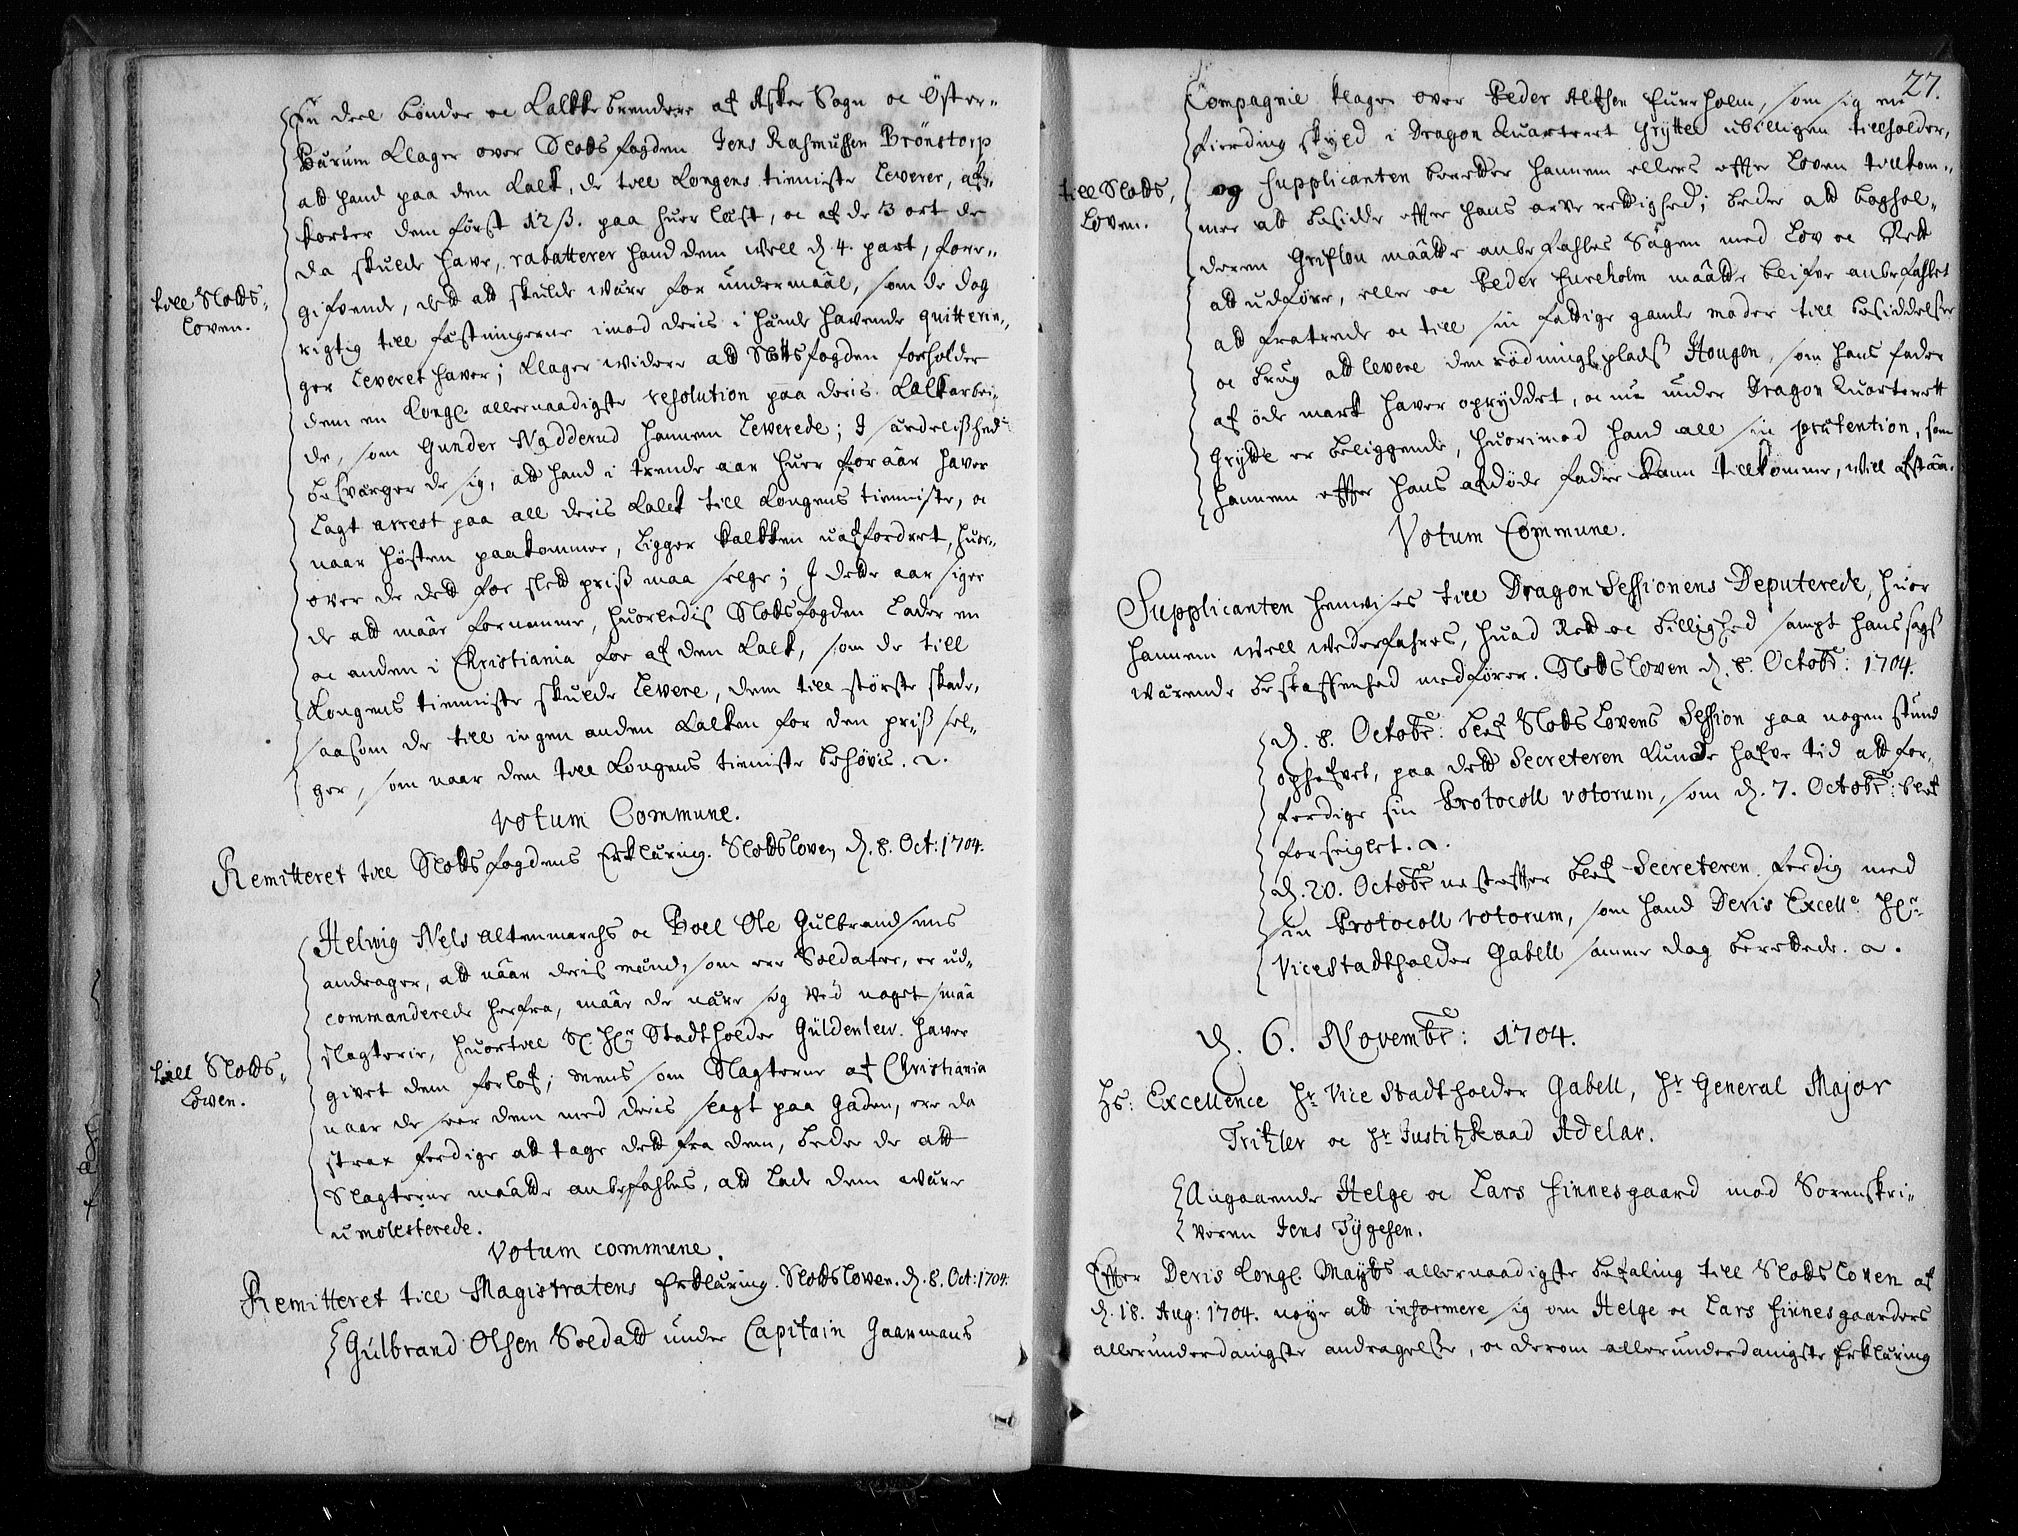 En deel bönder oc Kalkbrendere af Asker Sogn oc Öster-
Bærum Klager over Slotsfogden Jens Rasmussen Brönstorp
att hand paa den Kalk, de till Kongens tienniste leverer, af-
korter dem först 12 ß. paa huer läst, oc af de 3 ort de
da skulde have, rabatterer hand dem vell d. 4. part, fore-
gifvende, dett att skulde være for undermaal, som de dog
till Slotts-
Loven.
rigtig till fæstningerne imod deris i hænde havende quitterin-
ger leveret haver; Klager widere att Slottsfogden forholder
dem en Kongl. allernaadigste resolution paa deris Kalkarbei-
de, som Gunder Nadderud hannem leverede; I særdelished
besværger de sig, att hand i trende aar huer foraar haver
lagt arrest paa all deris Kalk till Kongens tienniste, oc
naar hösten paakommer, ligger kalkken uaffordret, huor-
over de dett for slett priss maa selge; I dette aar siger
de att maae fornemme, huorledis Slottsfogden lader en
oc anden i Christiania for af den Kalk, som de till
Kongens tienniste skulde levere, dem till störste skade,
saasom de till ingen anden Kalken for den priss sel-
ger, som naar den till Kongens tienniste behövis.
Votum Commune.
Remitteret till Slottsfogdens Erklæring. Slottsloven d. 8. Oct: 1704.
Helwig Nels Altenmarchs oc Boel Ole Gulbrandsens
andrager, att naar deris mænd, som ere Soldater, er ud-
commanderede herfra, maae de nære sig ved noget smaa
slagterie, huortill Hr. Stadtholder Güldenlew haver
till Slotts-
Loven.
givet dem forlof; Mens som Slagterne af Christiania
naar de seer dem med deris slagt paa Gaden, ere da
strax ferdige att tage dett fra dem, beder de att
Slagterne maatte anbefahles, att lade dem være
umolesterede.
Votum commune.
Remitteret till Magistratens Erklæring. Slottsloven. d. 8. Oct: 1704.
Gulbrand Olsen Soldatt under Capitain Gaarmans
27.
Compagnie klager over Peder Alfsen Huusholm, som sig en
fierding skyld i Dragon Quarteret Grytte ubilligen tillholder,
till Slotts,
Loven.
og Supplicanten beretter hannem ellers effter Loven tilkom-
mer att besidde effter hans arve rettighed; beder att boghol-
deren Griflou maatte anbefahles Sagen med Lov oc Rett
att udföre, eller oc Peder Huusholm maatte blifve anbefahlet
att fratræde oc till sin fattige gamle moder till besiddelse
oc brug att levere den rödningsplads Hougen, som hans fader
af öde mark haver opryddet, oc nu under Dragon Quarterett
Grytte er beliggende, huorimod hand all sin prætention, som
hannem effter hans afdöde fader kann tilkomme, will afstaa.
Votum Commune.
Supplicanten henvises till Dragon Sessionens Deputerede, huor
hannem well wederfahres, huad Rett oc billighed sampt hans sags
wærende beskaffenhed medförer. Slottsloven d. 8. Octobr: 1704.
d. 8. Octobr: blef Slotts Lovens Session paa nogen stund
ophæfvet, paa dett Secreteren kunde hafve tid att for-
ferdige sin Protocoll votorum, som d. 7. Octobr: blef
forseiglet.
d. 20. Octobr næsteffter blef Secreteren ferdig med
sin Protocoll votorum, som hand Deris Excelle. Hr.
Vicestadtholder Gabell samme dag berettede.
d. 6. Novembr: 1704.
Hs: Excellence Hr. Vice Stadtholder Gabell, Hr General Major
Tritzler oc Hr Justitz Raad Adelar.
Angaaende Helge oc Lars Finnesgaard mod Sorenskri-
veren Jens Tygesen.
Effter Deris Kongl. Maytts allernaadigste befaling till Slotts Loven af
d. 18. Aug: 1704. nöye att informere sig om Helge oc Lars Finnesgaarders
allerunderdanigste andragelse, oc derom allerunderdanigste Erklæring